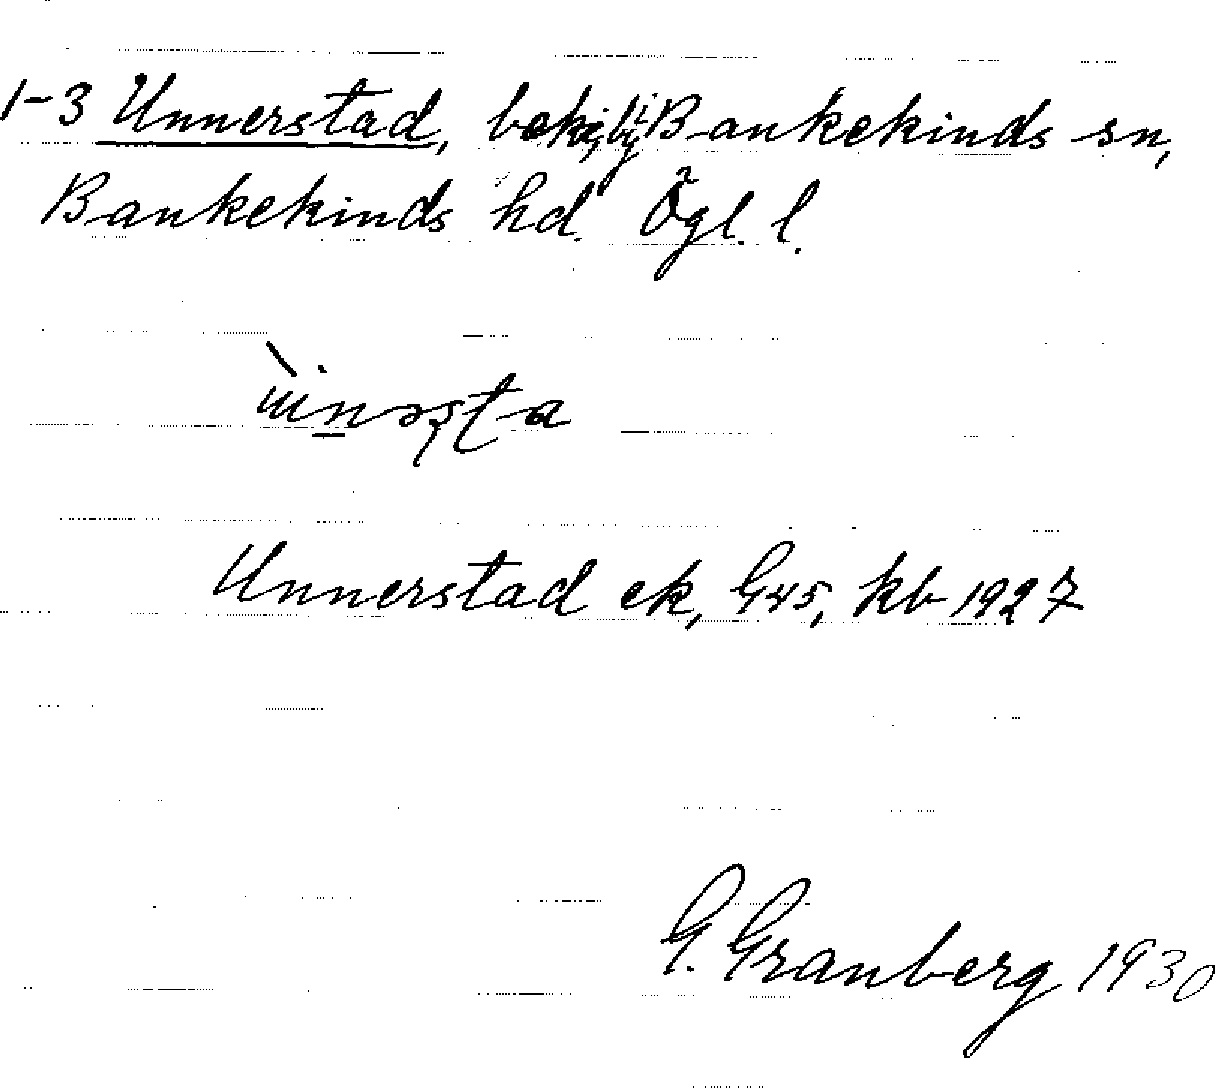 1-3 Unnerstad, by i Bankekinds sn,
Bankekinds hd. Ögl. l.
Unnerstad ek, G45, kb 1927
G. Granberg 1930